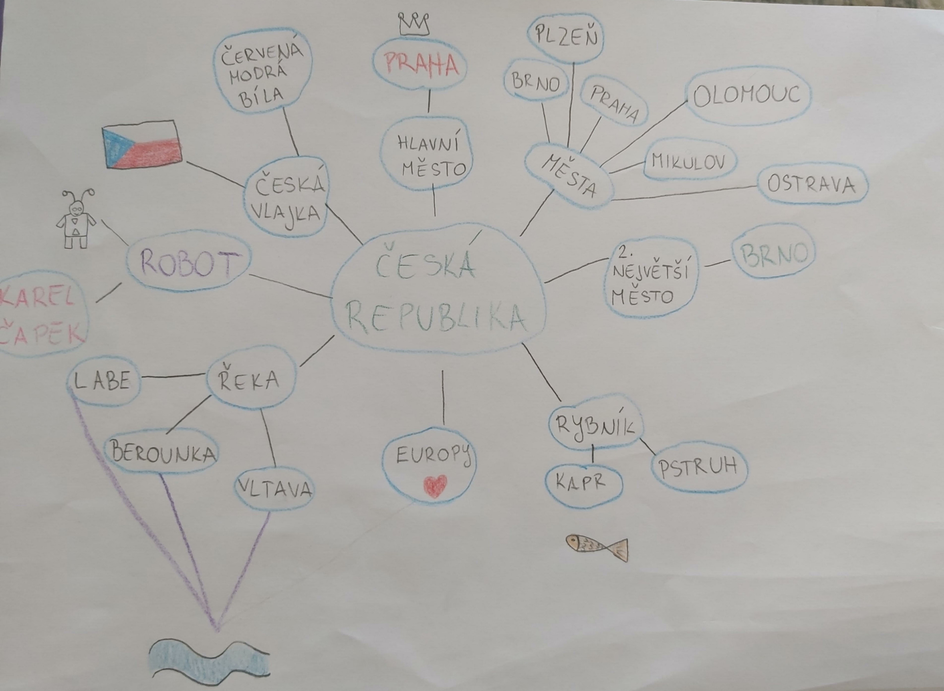 ČESKÁ
REPUBLIKA
ČERVENÁ
MODRÁ
BÍLA
ČESKÁ
VLAJKA
PRAHA
HLAVNÍ
MĚSTO
PLZEŇ
BRNO
PRAHA
OLOMOUC
MIKULOV
OSTRAVA
MĚSTA
2.
NEJVĚTŠÍ
MĚSTO
BRNO
ROBOT
KAREL
ČAPEK
ŘEKA
LABE
BEROUNKA
VLTAVA
EUROPY
RYBNÍK
KAPR
PSTRUH